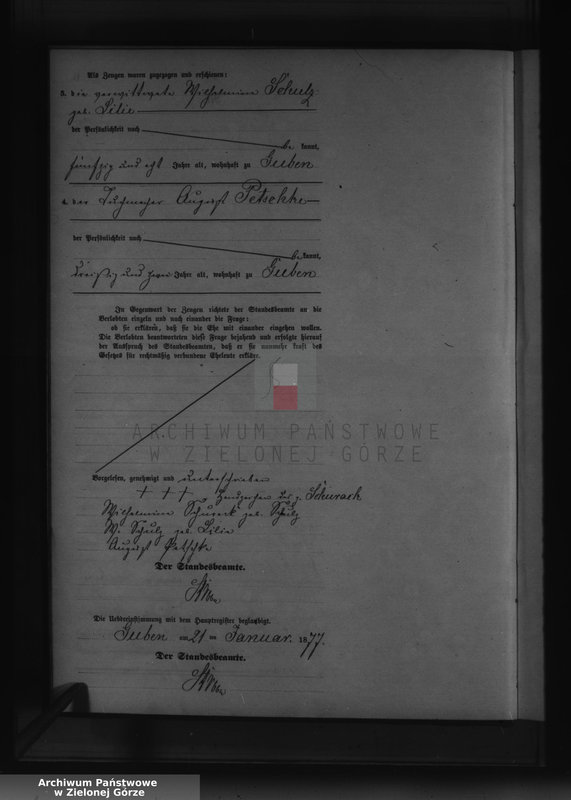 Als Zeugen waren zugezogen und erschienen:
3. die verwittwete Wilhelmine Schulz
geb. Lilie
der Persönlichkeit nach
be kannt,
fünfzig und acht Jahre alt, wohnhaft zu Guben
4. der Tuchmacher August Petschke
der Persönlichkeit nach
be kannt,
dreißig und zwei Jahre alt, wohnhaft zu Guben
In Gegenwart der Zeugen richtete der Standesbeamte an die
Verlobten einzeln und nach einander die Frage:
ob sie erklären, daß sie die Ehe mit einander eingehen wollen.
Die Verlobten beantworteten diese Frage bejahend und erfolgte hierauf
der Ausspruch des Standesbeamten, daß er sie nunmehr kraft des
Gesetzes für rechtmäßig verbundene Eheleute erkläre.
ARCHIWUM PAŃSTWOWE
W ZIELONEJ GÓRZE
Vorgelesen, genehmigt und unterschrieben
+ + + Handzeichen des p. Schurack
Wilhelmine Schurack geb. Schulz
W. Schulz geb. Lilie
August Petschke
Der Standesbeamte.
Die Uebereinstimmung mit dem Hauptregister beglaubigt.
Guben am 21 ten Januar 1877.
Der Standesbeamte.
Archiwum Państwowe
w Zielonej Górze